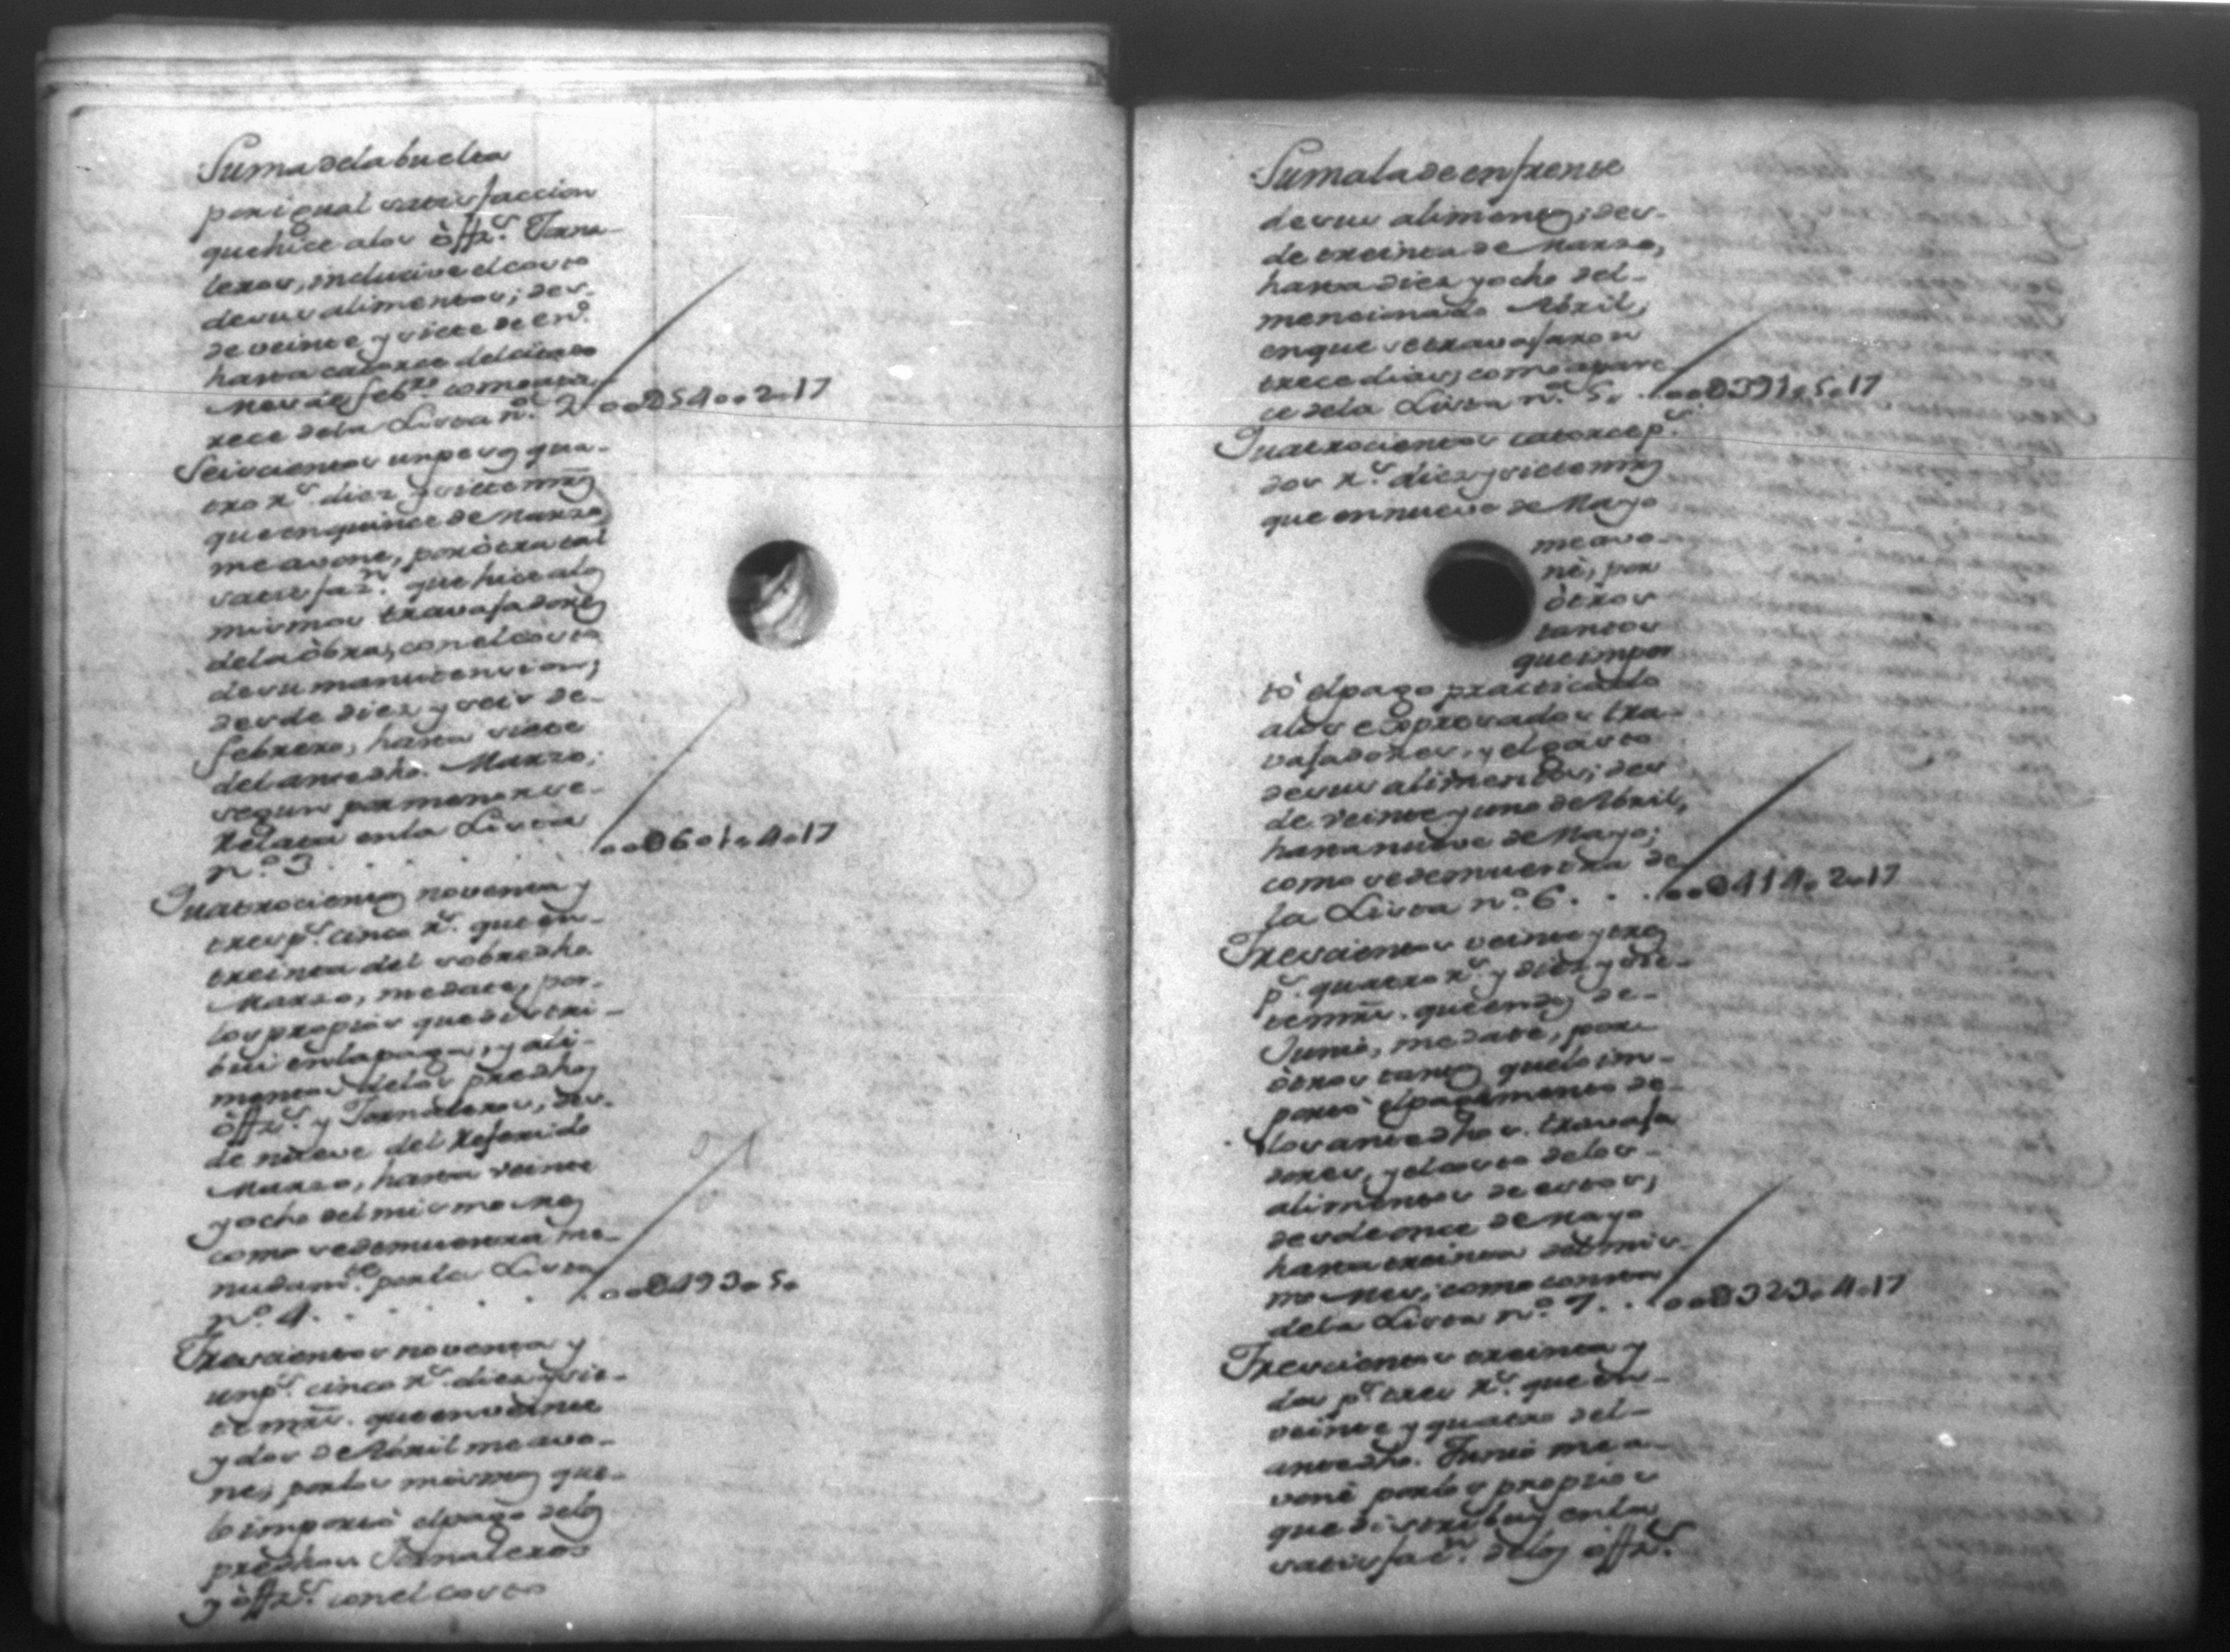 Suma dela buelta
por igual satisfaccion
que hice alos òffs.ˢ Jorna-
leros, inclusive el costo
desus alimentos; des-
de veinte y siete de en.º
hasta catorce del citado
Mes de feb.ʳᵒ como apa-
rece dela Lista n.º 2 0054..2.17
Seiscientos un pesos qua-
tro r.ˢ diez y siete mrs
que en quince de Marzo,
me abone, por òtra tal
satisfaz.ⁿ que hice alos
mismos travajadores
dela òbra, con el costo
desu manutension;
desde diez y seis de-
febrero, hasta siete
del antedho. Marzo;
segun por menor se-
relata enla Lista
n.º 3. . . . . . ..0601.4.17
Quatrocientos noventa y
tres p.ˢ cinco r.ˢ que en-
treinta del sobredho
Marzo, me date, por-
los propios que distri-
bui enla paga, y ali-
mentos delos predhos
òffs.ˢ y Jornaleros, des-
de nueve del referido
Marzo, hasta veinte
y ocho del mismo Mes
como se demuestra me-
nudam.ᵗᵉ por la Lista
n.º 4. . . . . . ..0493.5.
Trescientos noventa y
un p.ˢ cinco r.ˢ diez y sie-
te mrs. que en veinte
y dos de Abril me avo-
ne, por los mismos que-
lo importò el pago delos
predhos Jornaleros
y òffs.ˢ con el costo
Suma la de enfrente
desus alimentos; des-
de treinta de Marzo,
hasta diez y ocho del-
mencionado Abril,
en que se travajaron
trece dias; como apare-
ce dela Lista n.º 5. . ..0391.5.17
Quatrocientos catorce p.ˢ
dos r.ˢ diez y siete mrs
que en nueve de Mayo
me avo-
nè, por
òtros
tantos
que impor
tò el pago practicado
alos expresados tra-
vajadores, y el gasto
desus alimentos; des
de veinte y uno de Abril,
hasta nueve de Mayo;
como se demuestra de
la Lista n.º 6. . . ..0414.2.17
Trescientos veinte y tres
p.ˢ quatro r.ˢ y diez y sie-
te mrs. que en dos de-
Junio, me date, por-
òtros tantos que lo im-
portò el pagamento de-
los antedhos. travaja
dores, y el costo delos-
alimentos de estos;
desde once de Mayo
hasta treinta del mis-
mo Mes; como consta
dela Lista n.º 7. . ..0323.4.17
Trescientos treinta y
dos p.ˢ tres r.ˢ que en-
veinte y quatro del-
antedho. Junio me a-
vonè por los propios
que distribuy enla
satisfac.ⁿ delos òffs.ˢ